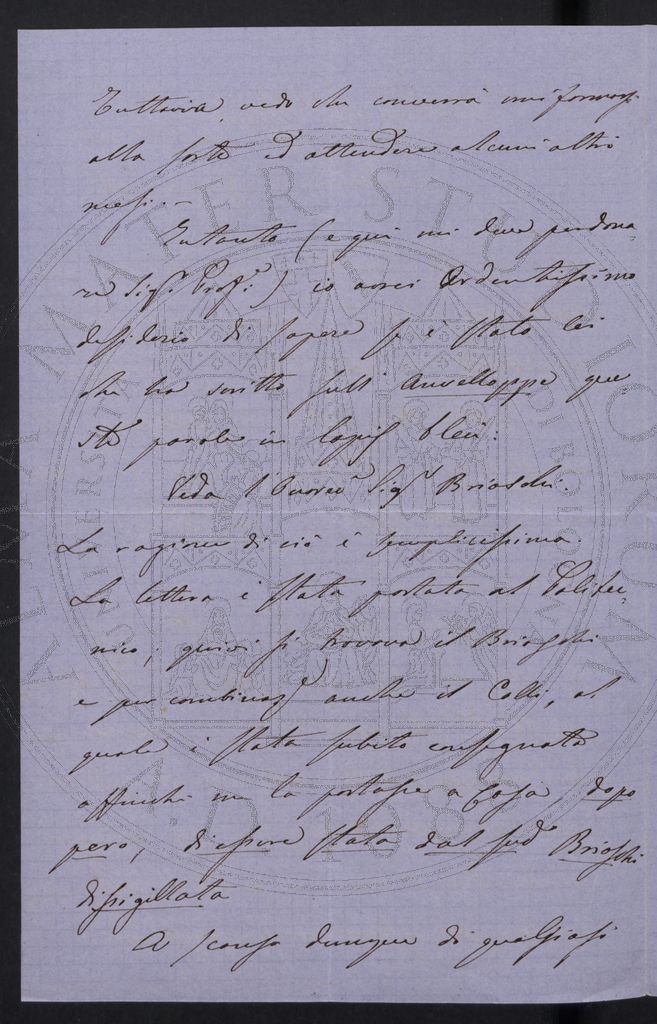 Tuttavia, vedo che converrà uniformarsi
alla sorte ed attendere alcuni altri
mesi. —
Intanto (e qui mi deve perdona
re Sigr. Profr.) io avrei Ardentissimo
desiderio di sapere se è stato lei
che ha scritto sull' Anvelloppe que
ste parole in lapis bleù:
Veda l'Onorev. Sigr. Brioschi.
La ragione di ciò è semplicissima.
La lettera è stata portata al Politec-
nico, quivi si trovava il Brioschi
e per combinaz. anche il Colli, al
quale è stata subito consegnata
affinchè me la portasse a Casa, dopo
però, di essere stata dal sudo. Brioschi
dissigillata
A scanso dunque di qualsiasi
ALMA MATER STUDIORUM
UNIVERSITÀ DI BOLOGNA
A.D. 1088